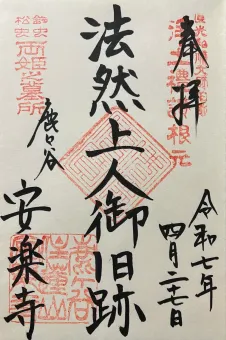 奉拝
浄土礼讃根元
法然上人御旧跡
鈴虫
松虫
両姫之墓所
鹿ヶ谷
安楽寺
令和七年
四月二十七日